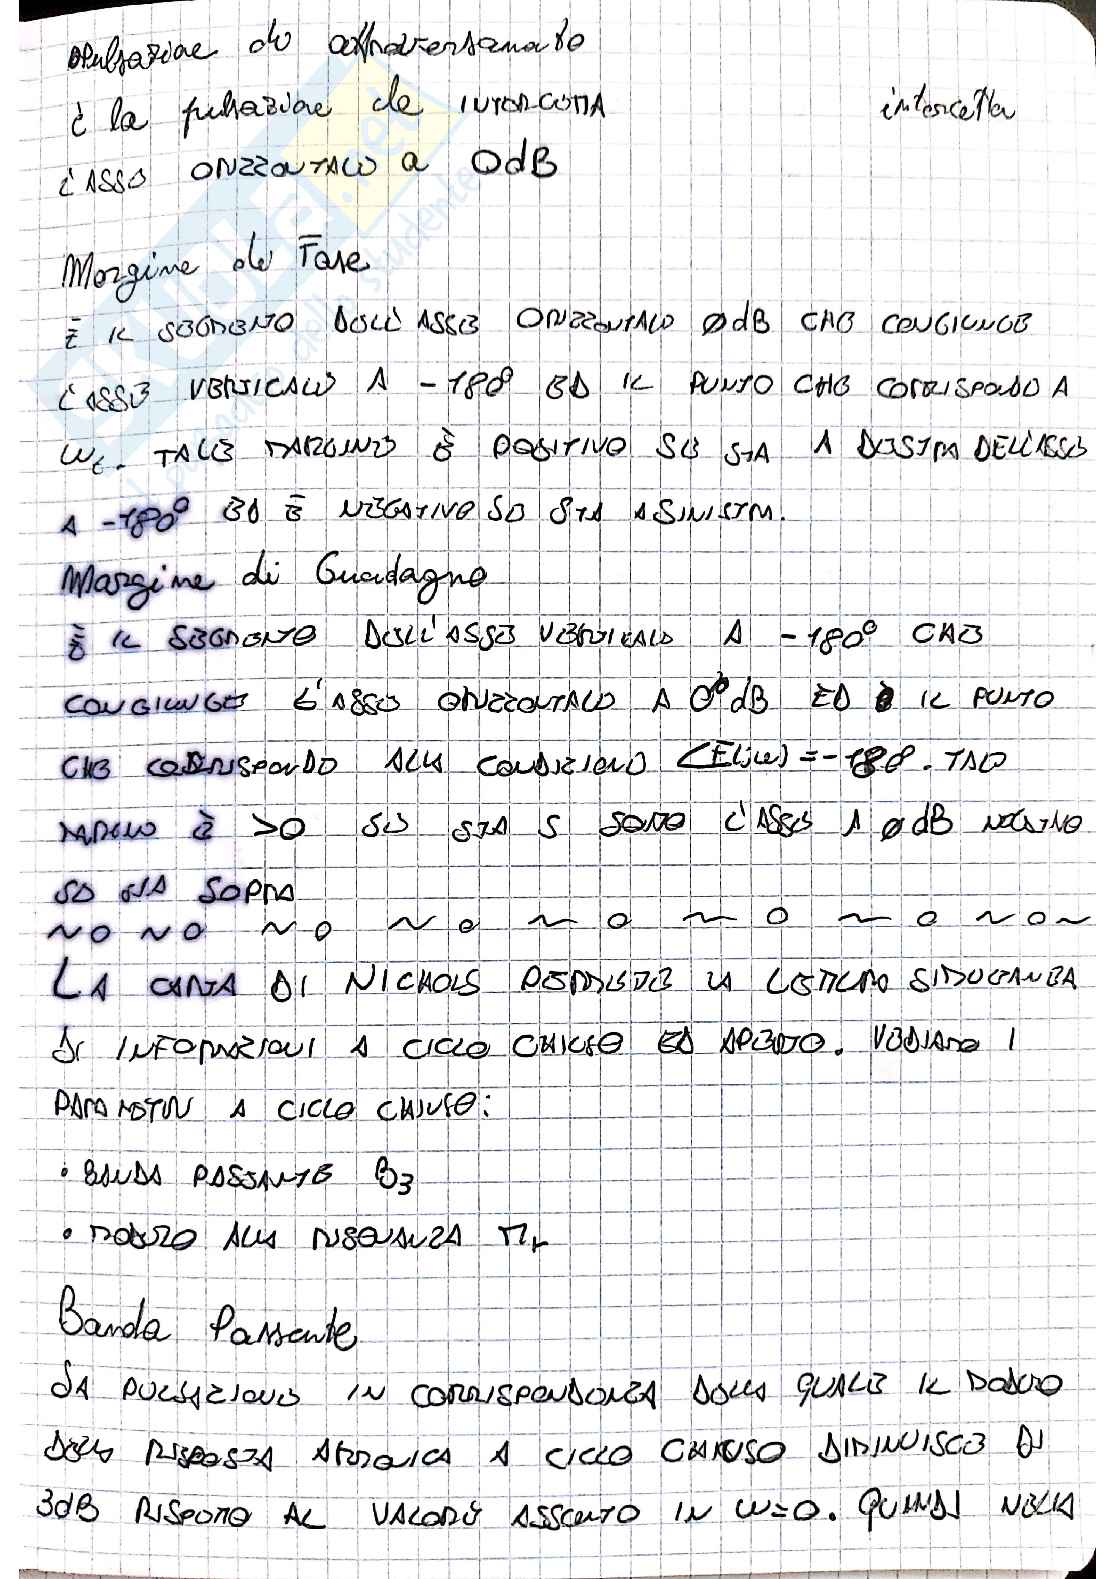 Pulsazione di attraversamento
è la pulsazione che INTERCETTA intercetta
L'ASSE ORIZZONTALE a 0dB
Margine di Fase
È IL SEGMENTO DELL'ASSE ORIZZONTALE 0dB CHE CONGIUNGE
L'ASSE VERTICALE A -180° ED IL PUNTO CHE CORRISPONDE A
ωt. TALE MARGINE È POSITIVO SE STA A DESTRA DELL'ASSE
A -180° ED È NEGATIVO SE STA A SINISTRA.
Margine di Guadagno
È IL SEGMENTO DELL'ASSE VERTICALE A -180° CHE
CONGIUNGE L'ASSE ORIZZONTALE A 0dB ED IL PUNTO
CHE CORRISPONDE ALLA CONDIZIONE ∠F(jω) = -180. TALE
MARGINE È >0 SE STA S SOTTO L'ASSE A 0dB NEGATIVO
SE STA SOPRA
LA CARTA DI NICHOLS PERMETTE LA LETTURA SIMULTANEA
DI INFORMAZIONI A CICLO CHIUSO ED APERTO. VEDIAMO I
PARAMETRI A CICLO CHIUSO:
• BANDA PASSANTE B3
• MODULO ALLA RISONANZA Mr
Banda Passante
LA PULSAZIONE IN CORRISPONDENZA DELLA QUALE IL MODULO
DELLA RISPOSTA ARMONICA A CICLO CHIUSO DIMINUISCE DI
3dB RISPETTO AL VALORE ASSUNTO IN ω=0. QUINDI NELLA
SKUOLA.net